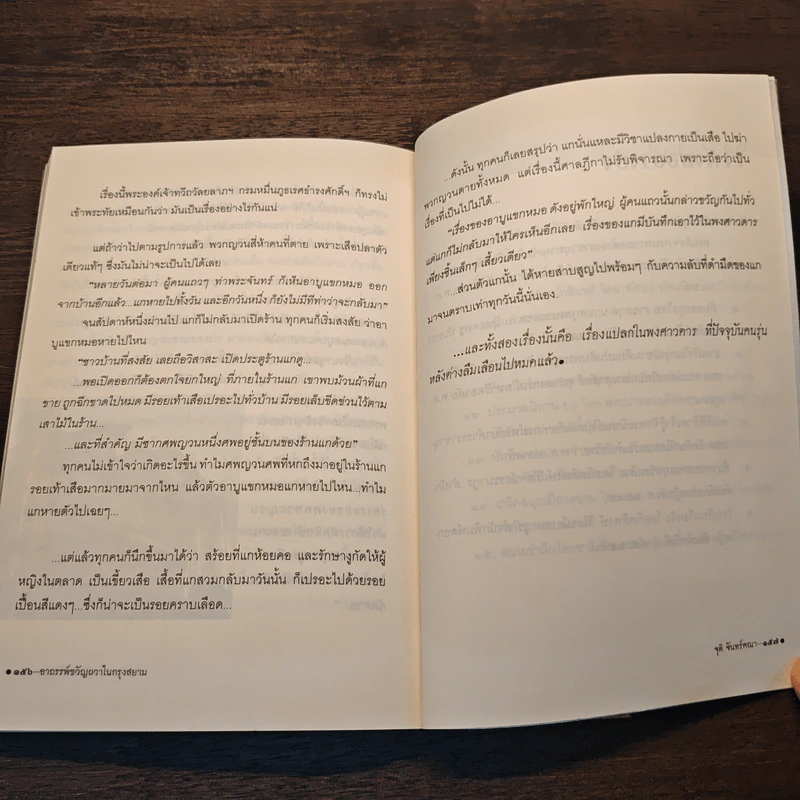 เรื่องนี้พระองค์เจ้าทวีถวัลยลาภฯ กรมหมื่นภูธเรศธำรงศักดิ์ฯ ก็ทรงไม่
เข้าพระทัยเหมือนกันว่า มันเป็นเรื่องอย่างไรกันแน่
แต่ถ้าว่าไปตามรูปการแล้ว พวกญวนสี่ห้าคนที่ตาย เพราะเสือปลาตัว
เดียวแท้ๆ ซึ่งมันไม่น่าจะเป็นไปได้เลย
“หลายวันต่อมา ผู้คนแถวๆ ท่าพระจันทร์ ก็เห็นอาบูแขกหมอ ออก
จากบ้านอีกแล้ว...แกหายไปทั้งวัน และอีกวันหนึ่ง ก็ยังไม่มีทีท่าว่าจะกลับมา”
จนสัปดาห์หนึ่งผ่านไป แกก็ไม่กลับมาเปิดร้าน ทุกคนก็เริ่มสงสัย ว่าอา
บูแขกหมอหายไปไหน
“ชาวบ้านที่สงสัย เลยถือวิสาสะ เปิดประตูร้านแกดู...
...พอเปิดออกก็ต้องตกใจยกใหญ่ ที่ภายในร้านแก เขาพบม้วนผ้าที่แก
ขาย ถูกฉีกขาดไปหมด มีรอยเท้าเสือเปรอะไปทั่วบ้าน มีรอยเล็บขีดข่วนไว้ตาม
เสาไม้ในร้าน...
...และที่สำคัญ มีซากศพญวนหนึ่งศพอยู่ชั้นบนของร้านแกด้วย”
ทุกคนไม่เข้าใจว่าเกิดอะไรขึ้น ทำไมศพญวนศพที่หกถึงมาอยู่ในร้านแก
รอยเท้าเสือมากมายมาจากไหน แล้วตัวอาบูแขกหมอแกหายไปไหน...ทำไม
แกหายตัวไปเฉยๆ...
...แต่แล้วทุกคนก็นึกขึ้นมาได้ว่า สร้อยที่แกห้อยคอ และรักษางูกัดให้ผู้
หญิงในตลาด เป็นเขี้ยวเสือ เสื้อที่แกสวมกลับมาวันนั้น ก็เปรอะไปด้วยรอย
เปื้อนสีแดงๆ...ซึ่งก็น่าจะเป็นรอยคราบเลือด...
● ๑๕๖--อาถรรพ์ขวัญผวาในกรุงสยาม
...ดังนั้น ทุกคนก็เลยสรุปว่า แกนั่นแหละมีวิชาแปลงกายเป็นเสือ ไปฆ่า
พวกญวนตายทั้งหมด แต่เรื่องนี้ศาลฎีกาไม่รับพิจารณา เพราะถือว่าเป็น
เรื่องที่เป็นไปไม่ได้...
“เรื่องของอาบูแขกหมอ ดังอยู่พักใหญ่ ผู้คนแถวนั้นกล่าวขวัญกันไปทั่ว
แต่แกก็ไม่กลับมาให้ใครเห็นอีกเลย เรื่องของแกมีบันทึกเอาไว้ในพงศาวดาร
เพียงชิ้นเล็กๆ เสี้ยวเดียว”
...ส่วนตัวแกนั้น ได้หายสาบสูญไปพร้อมๆ กับความลับที่ดำมืดของแก
มาจนตราบเท่าทุกวันนี้นั่นเอง.
...และทั้งสองเรื่องนั้นคือ เรื่องแปลกในพงศาวดาร ที่ปัจจุบันคนรุ่น
หลังต่างลืมเลือนไปหมดแล้ว●
จุติ จันทร์คณา--๑๕๗ ●